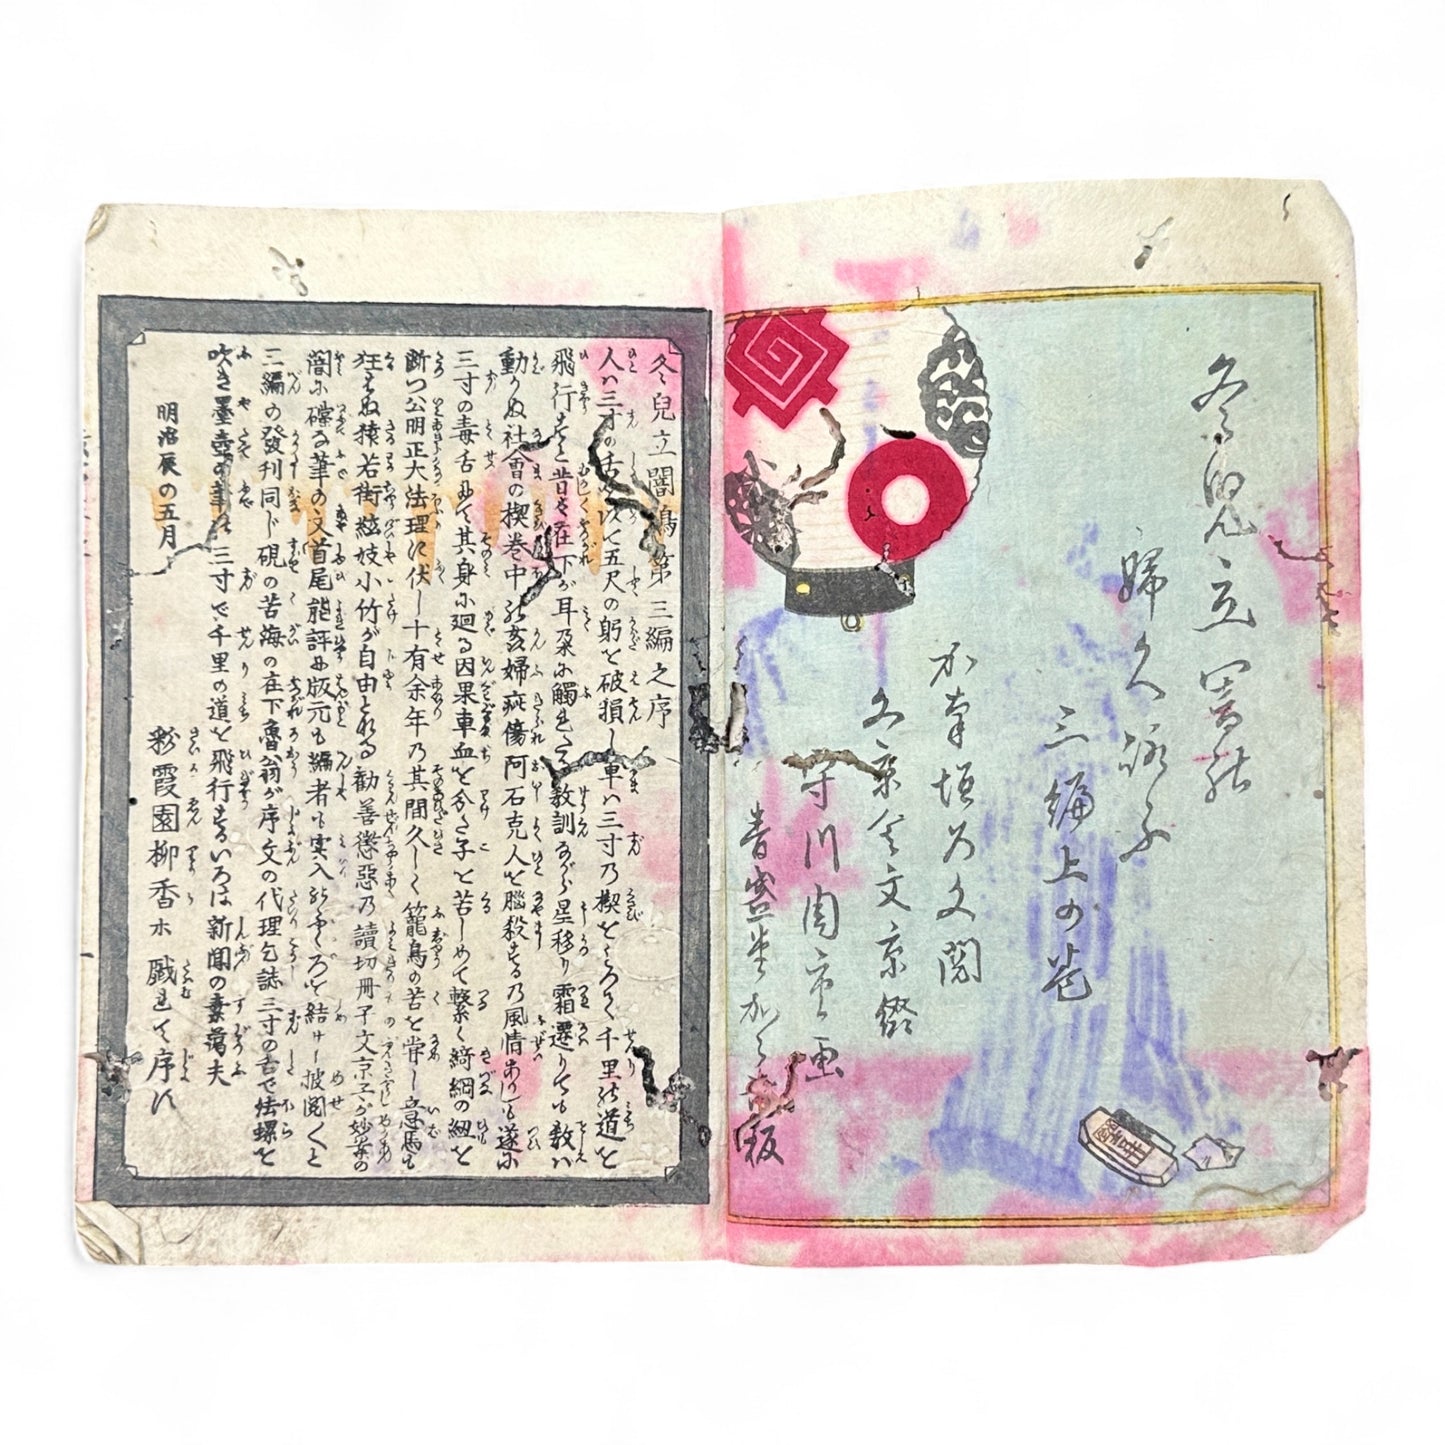 冬兒立闇
婦久詠ふ
三編上の卷
加奈垣乃文閲
文京舎文京綴
守川周重画
青盛堂加賀吉板
冬兒立闇鴗第三編之序
人ハ三寸の舌を以て五尺の躬を破損し車ハ三寸乃楔をもて千里の道を
飛行すと昔々在下が耳朶に觸れたる教訓ながら星移り霜遷りても教ハ
動かぬ社會の楔巻中の亥婦疵傷阿石克人を腦殺する乃風情ありしも遂に
三寸の毒舌にて其身に廻る因果車血を分た子を苦しめて繋く綺綱の紐を
断つ公明正大法理に伏し十有余年乃其間久しく籠鳥の苦を甞し意馬も
狂はぬ猿若街絃妓小竹が自由とれる勸善懲惡乃讀切冊子文京子が妙案の
闇に礫な筆の文首尾能評に版元も編者も実入のふくろを結けし披閲くと
三編の發刊同じ硯の苦海の在下魯翁が序文の代理乞誌三寸の舌で法螺を
吹き墨壺の筆は三寸で千里の道を飛行するいろは新聞の素蕩夫
明治辰の五月
彩霞園柳香ホ戲れて序す